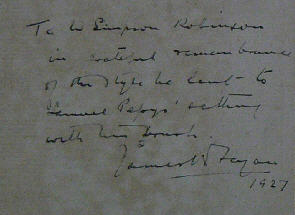 To W Simpson Robinson
in grateful remembrance
of the style he lent to
Samuel Pepys' setting
with his brush.
James B Fagan
1927